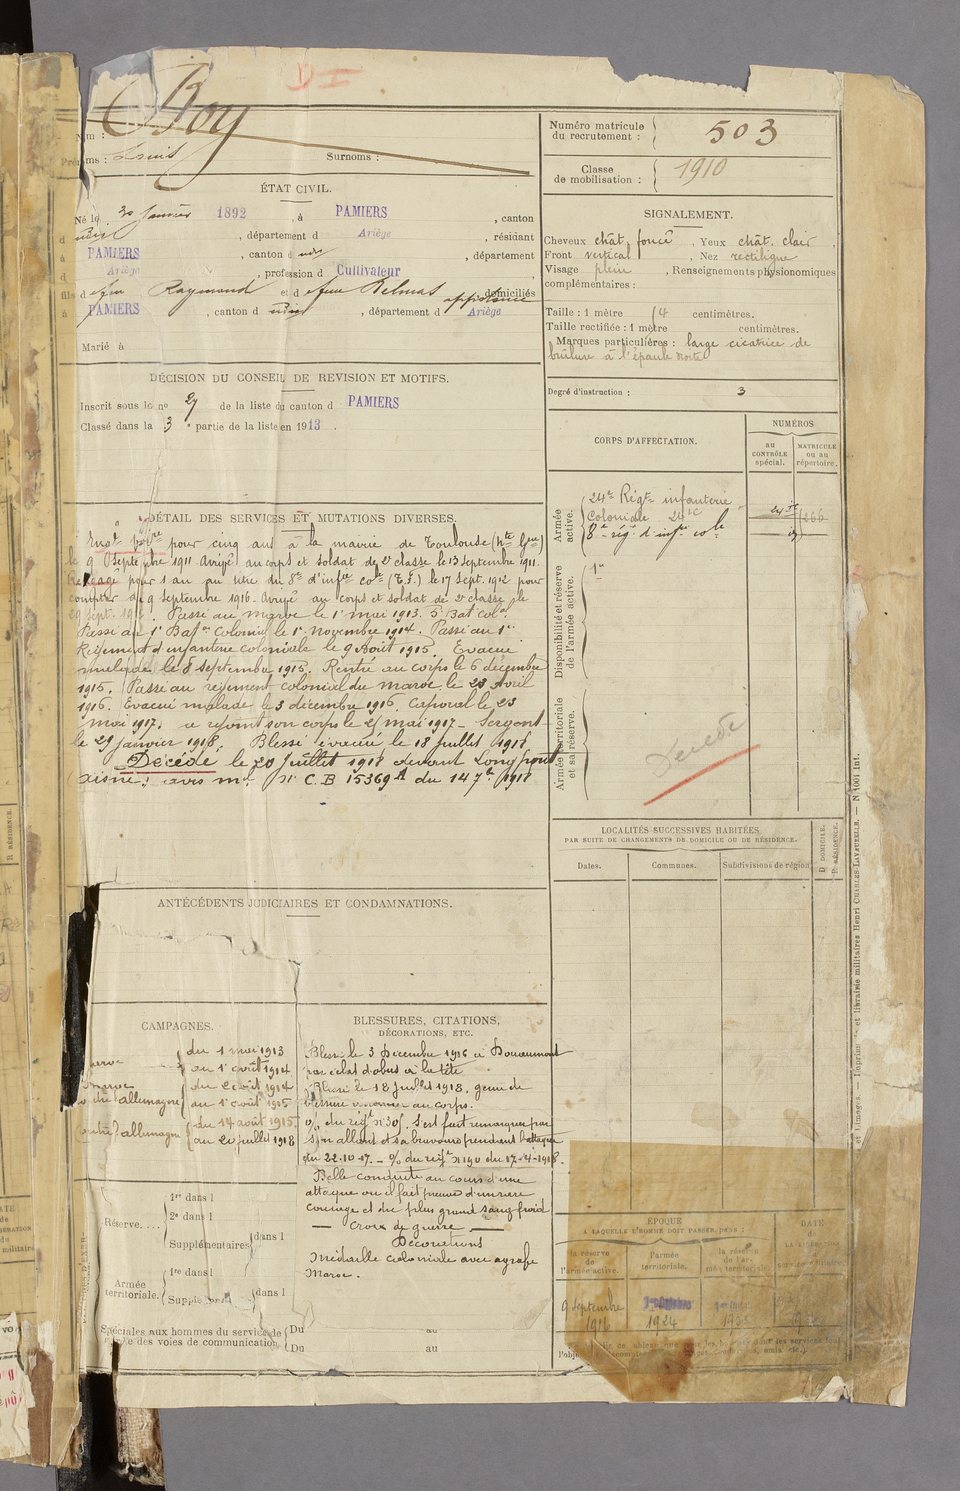 Boy
Nom :
Prénoms : Louis Surnoms :
Numéro matricule
du recrutement : 503
Classe
de mobilisation : 1910
ÉTAT CIVIL.
Né le 30 Janvier 1892, à PAMIERS, canton
dudit, département d Ariège, résidant
à PAMIERS, canton d udit, département
d Ariège, profession d Cultivateur
fils d e feu Raymond et d e feue Delmas domiciliés
à PAMIERS, canton d udit, département d Ariège
Marié à
SIGNALEMENT.
Cheveux chât. foncé, Yeux chât. clair
Front vertical, Nez rectiligne
Visage plein, Renseignements physionomiques
complémentaires :
Taille : 1 mètre 64 centimètres.
Taille rectifiée : 1 mètre centimètres.
Marques particulières : large cicatrice de
brûlure à l'épaule
Degré d'instruction : 3
DÉCISION DU CONSEIL DE REVISION ET MOTIFS.
Inscrit sous le no 27 de la liste du canton d PAMIERS
Classé dans la 3 e partie de la liste en 1913.
CORPS D'AFFECTATION.
NUMÉROS
au
CONTRÔLE
spécial.
MATRICULE
ou au
répertoire.
Armée
active.
24e Régt infanterie
Coloniale
8e rég. d'infie colle
Disponibilité et réserve
de l'armée active.
1er
Armée territoriale
et sa réserve.
Décédé
DÉTAIL DES SERVICES ET MUTATIONS DIVERSES.
Engé volre pour cinq ans à la mairie de Toulouse (Hte Gne)
le 9 Septembre 1911. Arrivé au corps et soldat de 2e classe le 13 septembre 1911.
Rengagé pour 1 an au titre du 8e d'infie colle (T.S.) le 17 Sept. 1912 pour
compter du 9 septembre 1916. Arrivé au corps et soldat de 2e classe le
29 Sept. Passé au maroc le 1er mai 1913. Bat colal
Passé au 1er Baton Colonial le 1er novembre 1914. Passé au 1er
Régiment d'infanterie coloniale le 9 Août 1915. Evacué
malade le 8 septembre 1915. Rentré au corps le 6 décembre
1915. Passé au régiment colonial du maroc le 23 Avril
1916. Evacué malade le 3 décembre 1916. Caporal le 23
mai 1917. a rejoint son corps le 25 mai 1917 - Sergent
le 29 janvier 1918. Blessé évacué le 18 juillet 1918
Décédé le 20 juillet 1918 devant Longpont
Aisne avis mel N° C.B 15369 du 14 7bre 1918
LOCALITÉS SUCCESSIVES HABITÉES
PAR SUITE DE CHANGEMENTS DE DOMICILE OU DE RÉSIDENCE.
Dates. Communes. Subdivisions de région
D. DOMICILE.
R. RÉSIDENCE.
ANTÉCÉDENTS JUDICIAIRES ET CONDAMNATIONS.
CAMPAGNES.
Maroc du 1 mai 1913
au 1er août 1914
Maroc du 2 août 1914
contre allemagne au 1er août 1915
contre allemagne du 14 août 1915
au 20 juillet 1918
Réserve.... 1re dans l
2e dans l
Supplémentaires dans l
Armée
territoriale. 1re dans l
Supplém dans l
Spéciales aux hommes du service de
garde des voies de communication. Du au
Du au
BLESSURES, CITATIONS,
DÉCORATIONS, ETC.
Blessé le 3 Décembre 1916 à Douaumont
par éclat d'obus à la tête
Blessé le 18 juillet 1918, genre de
blessure au corps.
O/ du régt n° 30. S'est fait remarquer par
son allant et sa bravoure pendant l'attaque
du 22.10.17. - O/ du régt n° 190 du 17-4-1918.
Belle conduite au cours d'une
attaque où il fait preuve d'un rare
courage et du plus grand sang froid
— Croix de guerre —
Décorations
Médaille coloniale avec agrafe
Maroc.
ÉPOQUE
A LAQUELLE L'HOMME DOIT PASSER DANS :
DATE
la réserve
de
l'armée active.
l'armée
territoriale.
la réserve
de l'ar-
mée territoriale.
9 Septembre
1916
1924
et Limoges. — Imprimerie et librairie militaires Henri CHARLES-LAVAUZELLE. — N 1001 Int.